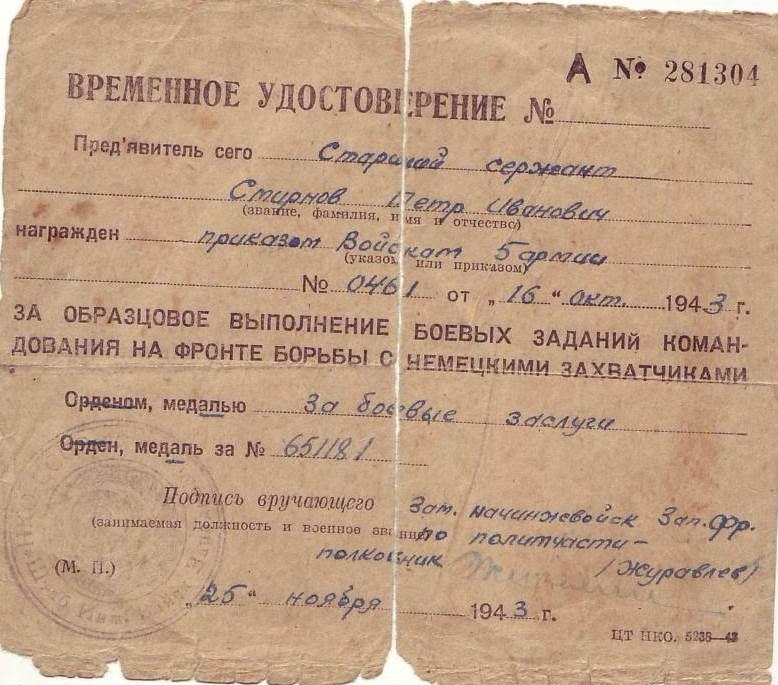 А № 281304
ВРЕМЕННОЕ УДОСТОВЕРЕНИЕ №
Пред'явитель сего Старший сержант
Смирнов Петр Иванович
(звание, фамилия, имя и отчество)
награжден приказом Войскам 5 армии
(указом или приказом)
№ 0461 от „16" окт. 1943 г.
ЗА ОБРАЗЦОВОЕ ВЫПОЛНЕНИЕ БОЕВЫХ ЗАДАНИЙ КОМАН-
ДОВАНИЯ НА ФРОНТЕ БОРЬБЫ С НЕМЕЦКИМИ ЗАХВАТЧИКАМИ
Орденом, медалью За боевые заслуги
Орден, медаль за № 651181
Подпись вручающего Зам. начинжвойск Зап. фр.
(занимаемая должность и военное звание) по политчасти —
полковник /Журавлев/
(М. П.)
„25" ноября 1943 г.
ЦТ НКО. 5236—43